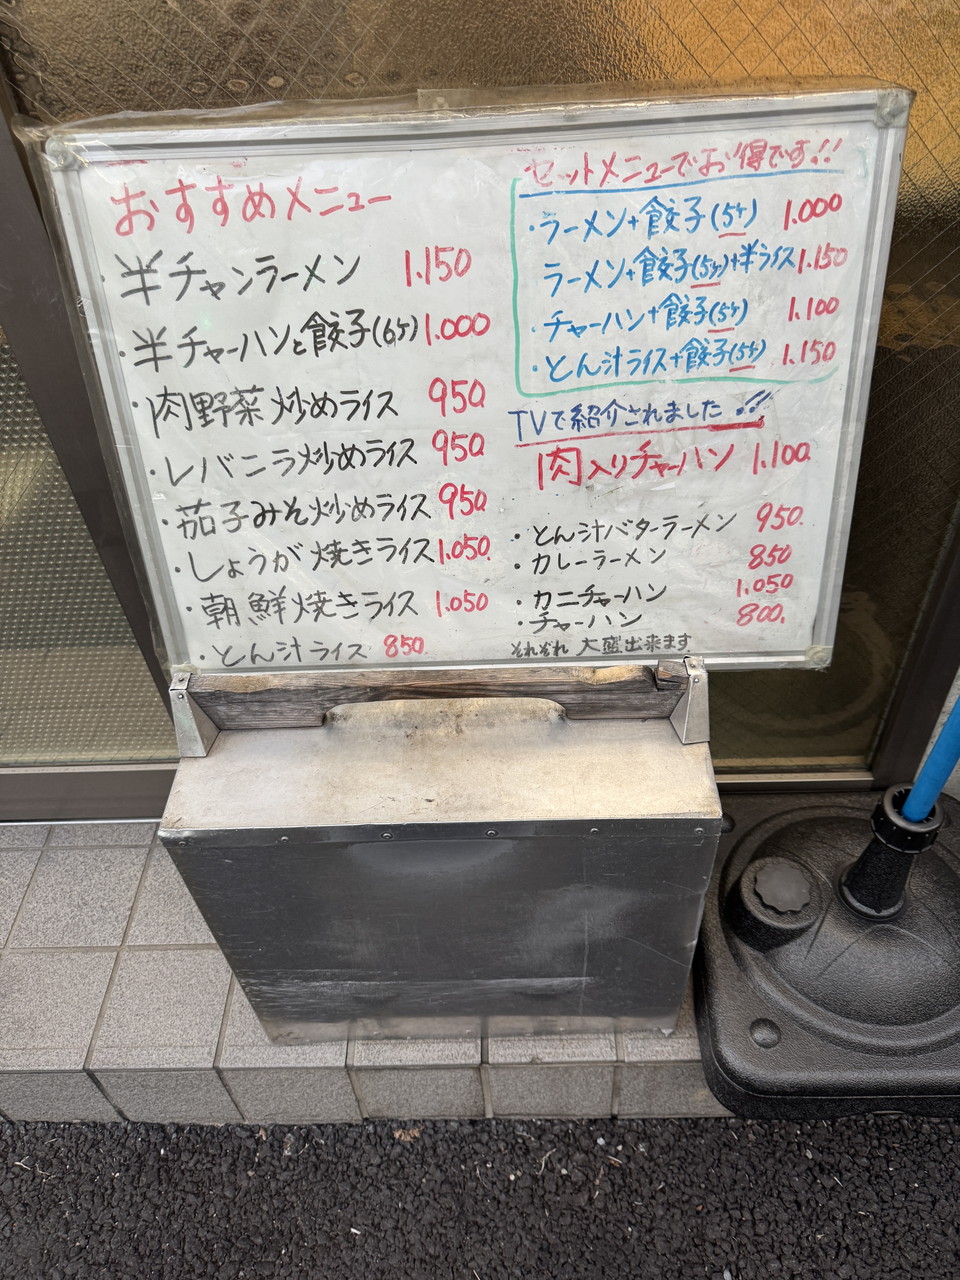 おすすめメニュー
・半チャンラーメン 1.150
・半チャーハンと餃子(6ケ) 1.000
・肉野菜炒めライス 950
・レバニラ炒めライス 950
・茄子みそ炒めライス 950
・しょうが焼きライス 1.050
・朝鮮焼きライス 1.050
・とん汁ライス 850
セットメニューでお得です!!
・ラーメン+餃子(5ケ) 1.000
ラーメン+餃子(5ケ)+半ライス 1.150
・チャーハン+餃子(5ケ) 1.100
・とん汁ライス+餃子(5ケ) 1.150
TVで紹介されました!!
肉入りチャーハン 1.100
・とん汁バターラーメン 950
・カレーラーメン 850
・カニチャーハン 1.050
・チャーハン 800
それぞれ 大盛出来ます